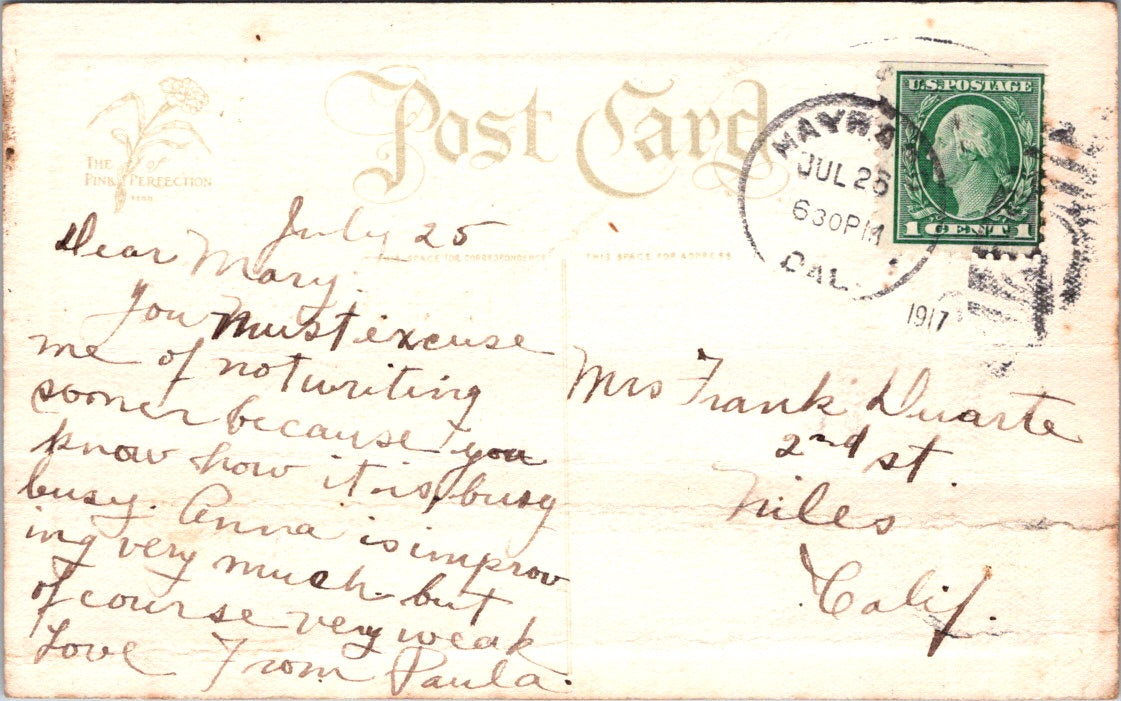 Post Card
THE
of
PINK PERFECTION
U.S. POSTAGE
1 CENT 1
JUL 25
630 PM
CAL.
1917
SPACE FOR CORRESPONDENCE
THIS SPACE FOR ADDRESS
July 25
Dear Mary.
You must excuse
me of not writing
sooner because you
know how it is, busy
busy. Anna is improv
ing very much but
of course very weak
Love From Paula.
Mrs Frank Duarte
2nd st.
Niles
Calif.